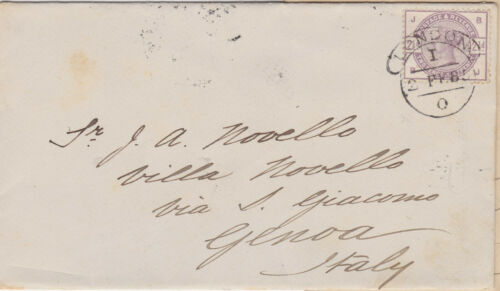 J B
POSTAGE & REVENUE
LONDON
I
FY 8
O
Sr J. A. Novello
Villa Novello
via S. Giacomo
Genoa
Italy